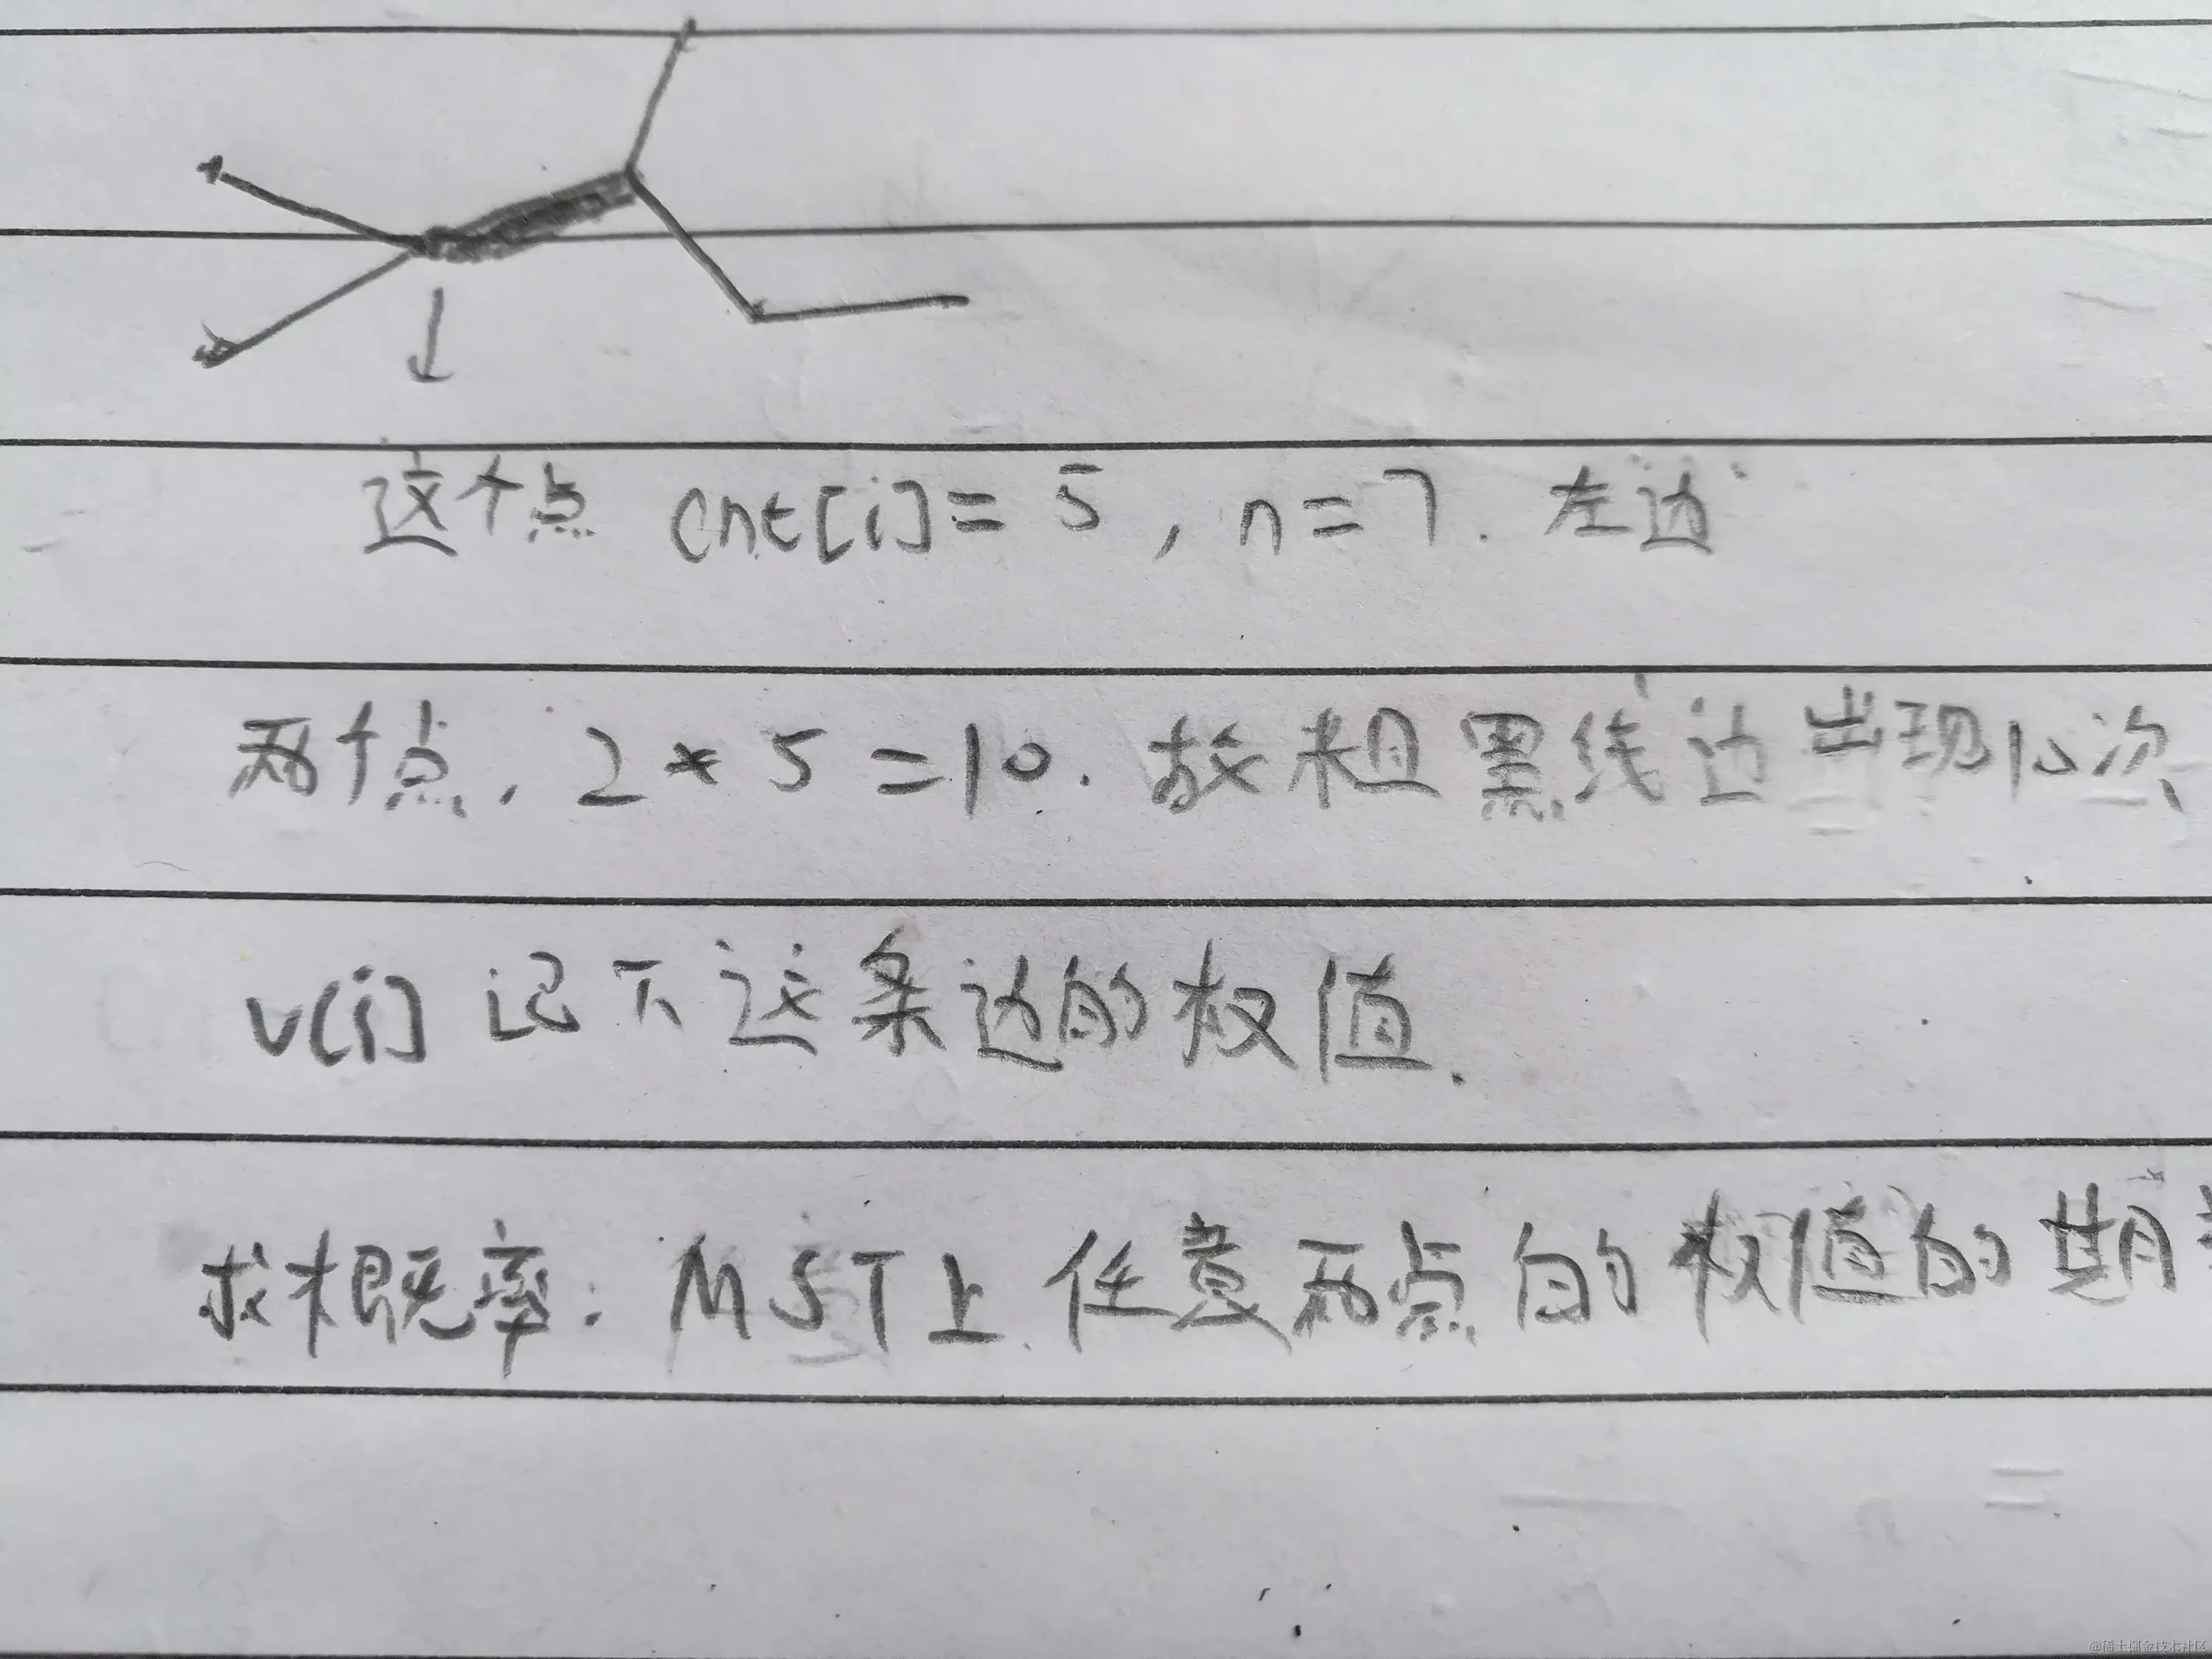 这个点 cnt[i] = 5, n = 7. 左边
两个点. 2 * 5 = 10. 故粗黑线边出现10次
v[i] 记下这条边的权值.
求概率: MST上任意两点的权值的期
@稀土掘金技术社区